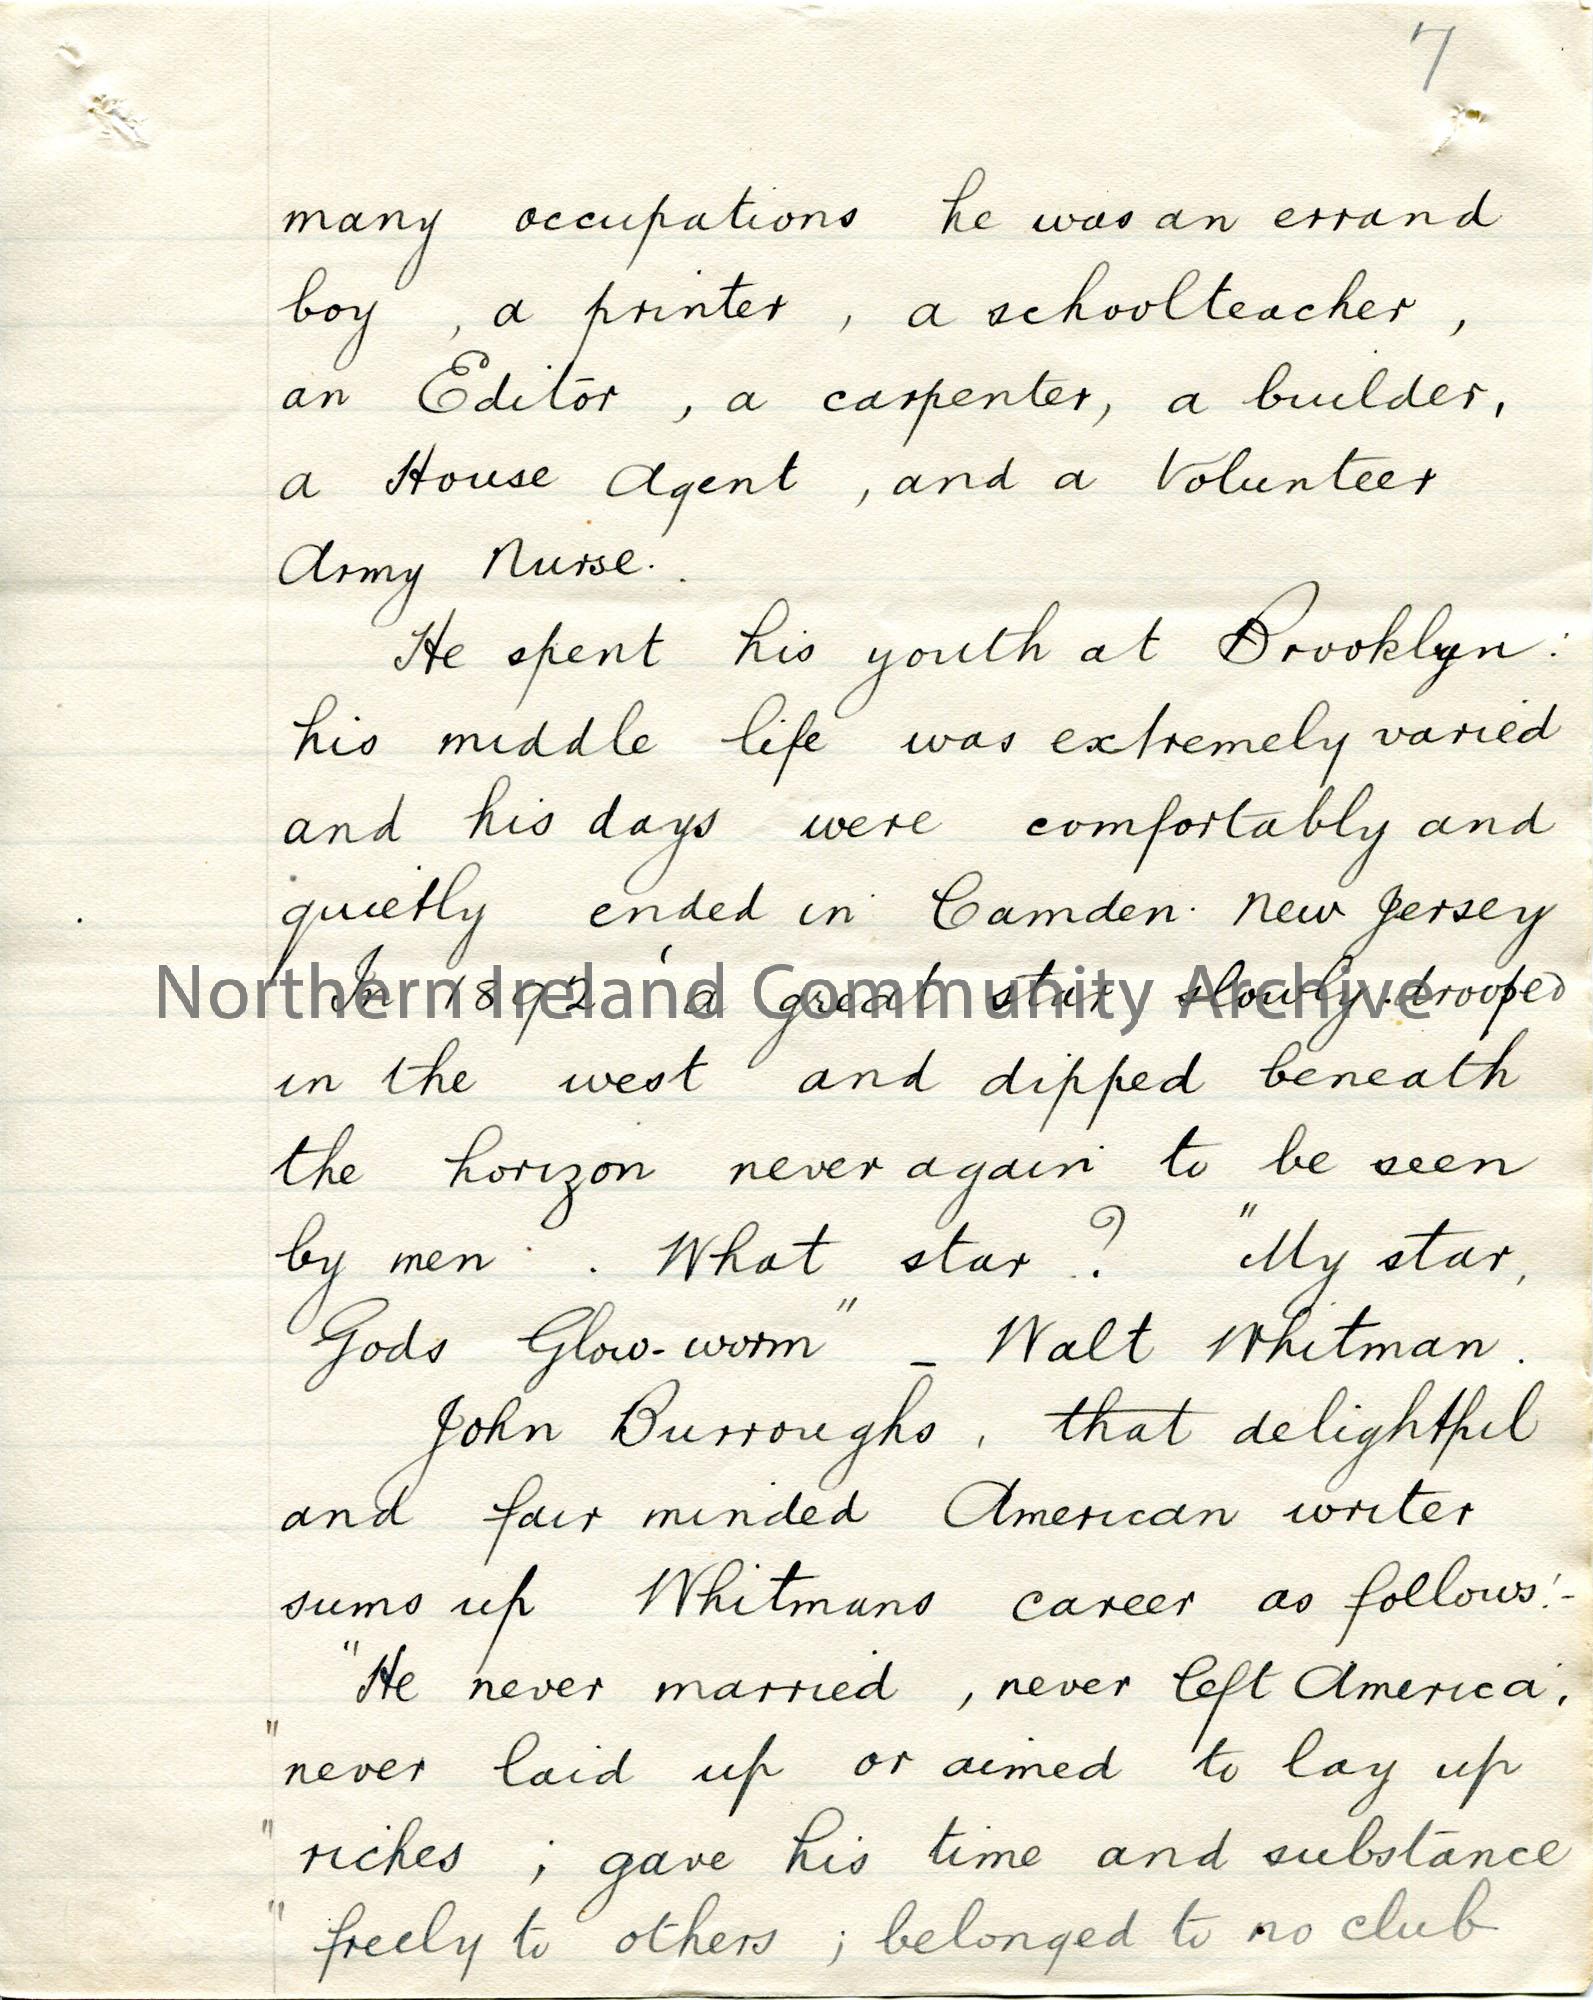 7
many occupations he was an errand
boy , a printer , a schoolteacher ,
an Editor , a carpenter, a builder,
a House Agent , and a Volunteer
Army Nurse.
He spent his youth at Brooklyn :
his middle life was extremely varied
and his days were comfortably and
quietly ended in Camden. New Jersey
In 1892 ' a great star slowly drooped
Northern Ireland Community Archive
in the west and dipped beneath
the horizon never again to be seen
by men . What star ? "My star,
Gods Glow-worm" - Walt Whitman.
John Burroughs , that delightful
and fair minded American writer
sums up Whitmans career as follows:-
"He never married , never left America,
" never laid up or aimed to lay up
" riches ; gave his time and substance
" freely to others ; belonged to no club